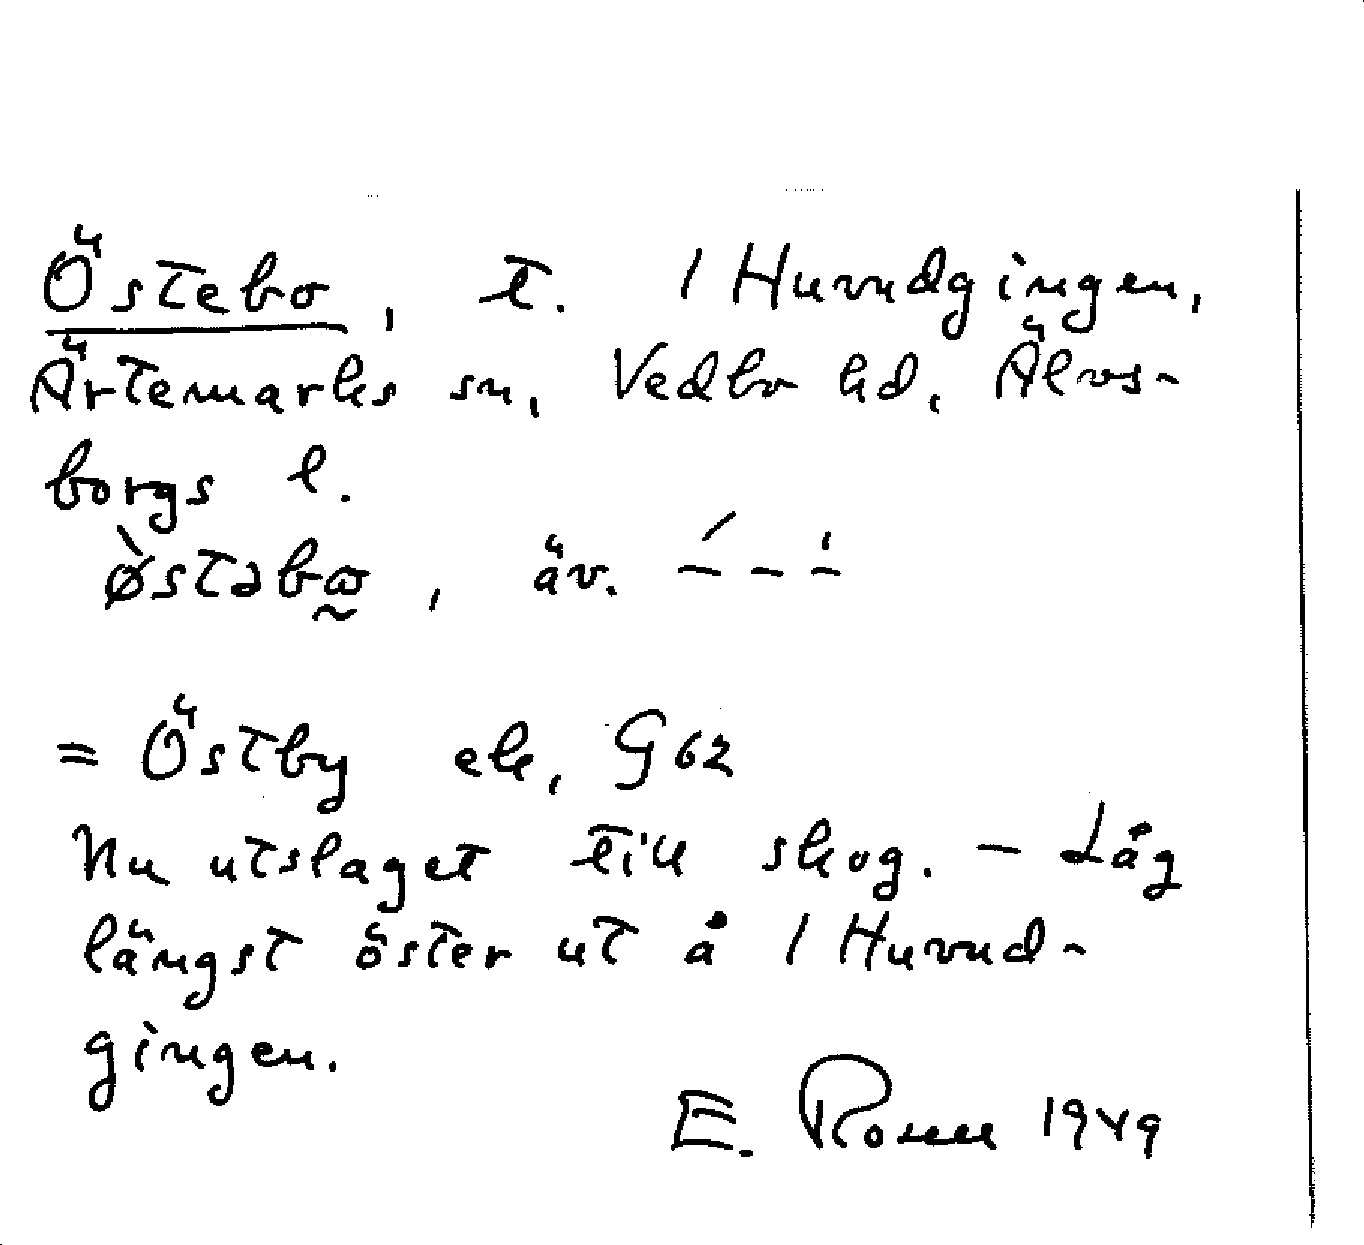 Östebo, t. 1 Huvudgingen,
Ärtemarks sn, Vedbo hd, Älvs-
borgs l.
ø̀stəbω̰, äv. –́ – –̍
= Östby ek, G62
Nu utslaget till skog. – Låg
längst öster ut å 1 Huvud-
gingen.
E. Rosell 1949